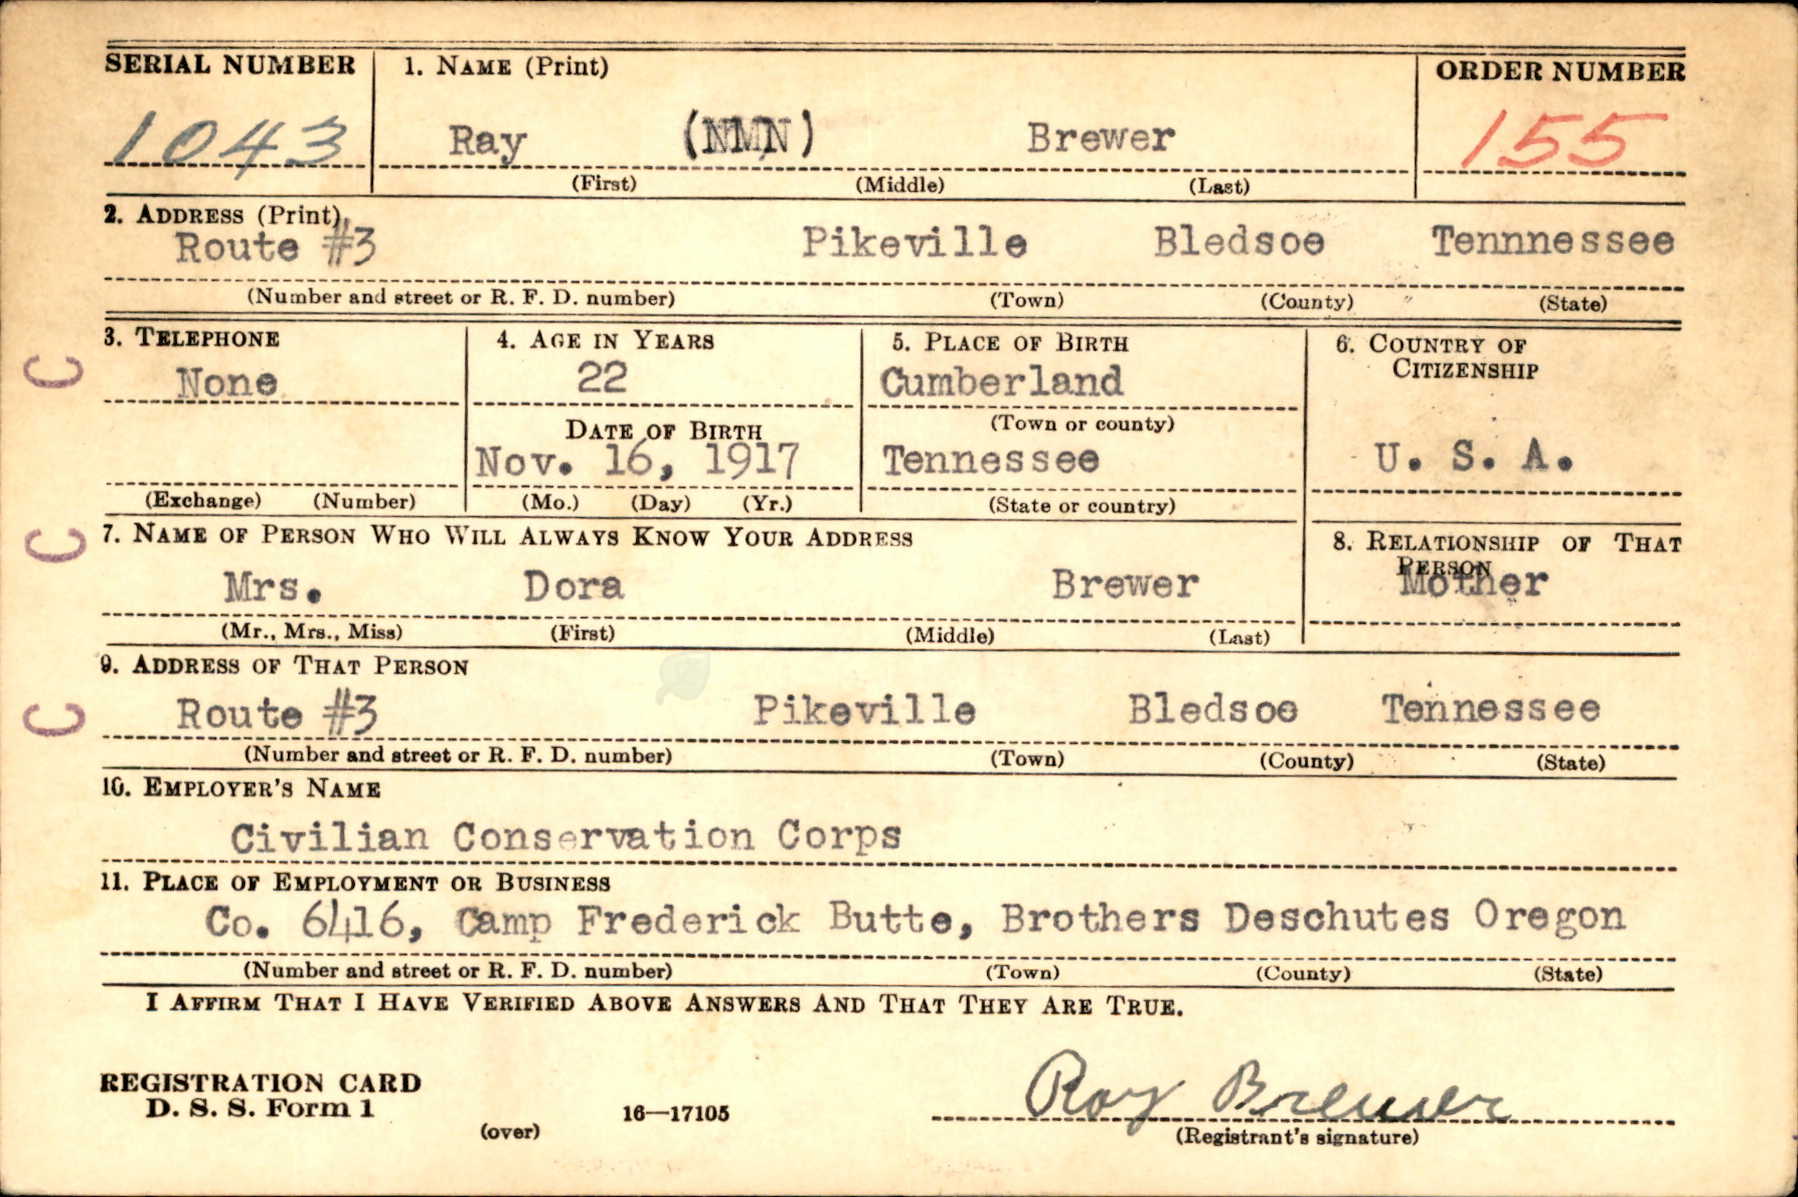 SERIAL NUMBER 1. NAME (Print) ORDER NUMBER
1043 Ray (NMN) Brewer 155
(First) (Middle) (Last)
2. ADDRESS (Print)
Route #3 Pikeville Bledsoe Tennnessee
(Number and street or R. F. D. number) (Town) (County) (State)
3. TELEPHONE 4. AGE IN YEARS 5. PLACE OF BIRTH 6. COUNTRY OF
CITIZENSHIP
C None 22 Cumberland
DATE OF BIRTH (Town or county)
Nov. 16, 1917 Tennessee U. S. A.
(Exchange) (Number) (Mo.) (Day) (Yr.) (State or country)
C 7. NAME OF PERSON WHO WILL ALWAYS KNOW YOUR ADDRESS 8. RELATIONSHIP OF THAT
PERSON
Mrs. Dora Brewer Mother
(Mr., Mrs., Miss) (First) (Middle) (Last)
9. ADDRESS OF THAT PERSON
C Route #3 Pikeville Bledsoe Tennessee
(Number and street or R. F. D. number) (Town) (County) (State)
10. EMPLOYER'S NAME
Civilian Conservation Corps
11. PLACE OF EMPLOYMENT OR BUSINESS
Co. 6416, Camp Frederick Butte, Brothers Deschutes Oregon
(Number and street or R. F. D. number) (Town) (County) (State)
I AFFIRM THAT I HAVE VERIFIED ABOVE ANSWERS AND THAT THEY ARE TRUE.
REGISTRATION CARD
D. S. S. Form 1 16—17105 Ray Brewer
(over) (Registrant's signature)